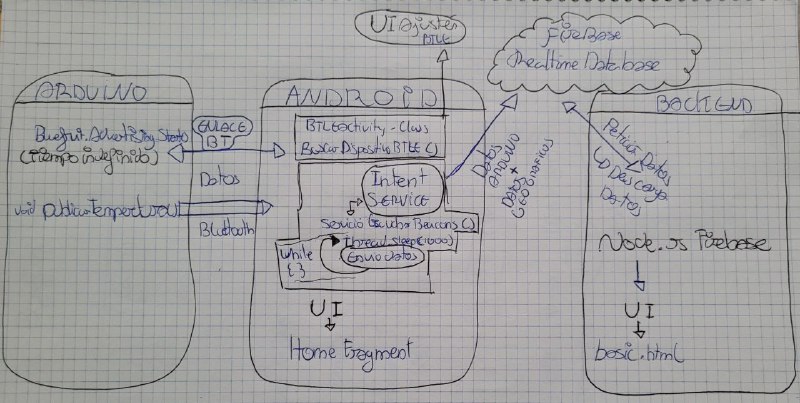 UI Ajustes
BTLE
FireBase
Realtime Database
ARDUINO
Bluefruit.Advertising.Start()
(tiempo indefinido)
void publicarTemperatura()
ENLACE
BT5
Datos
Bluetooth
ANDROID
BTLEactivity-Class
BuscarDispositivoBTLE()
Intent
SERVICE
Servicio EscucharBeacons()
thread.sleep(1000)
While
{ }
Envio datos
UI
Home Fragment
Datos
ARDUINO
+
Datos
GEOGRAFICOS
BACKEND
Peticion Datos
Descarga
Datos
Node.js Firebase
UI
basic.html